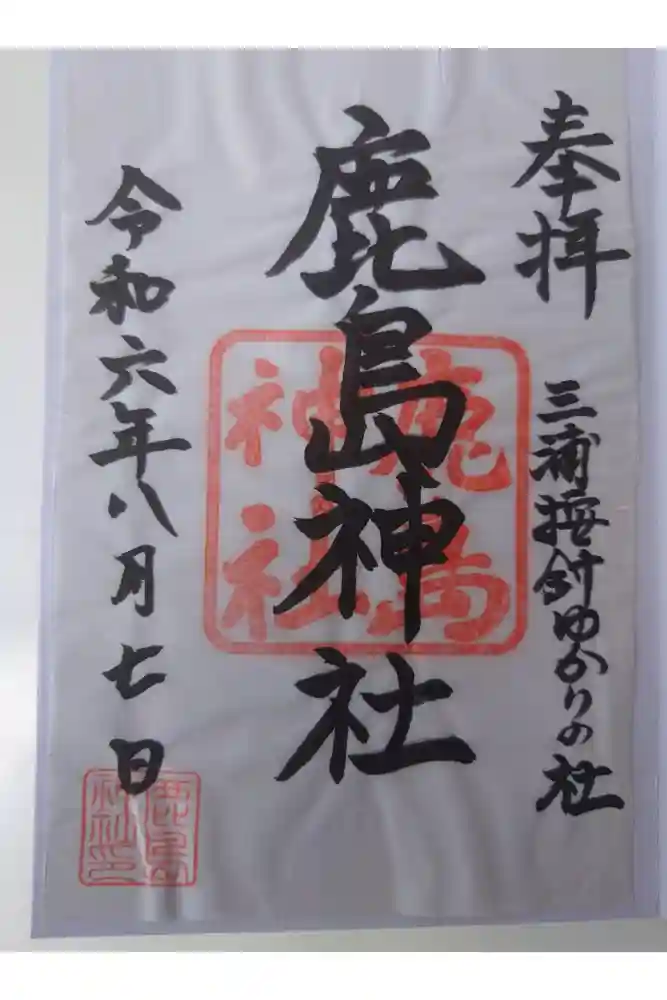 奉拝
三浦按針ゆかりの社
鹿島神社
鹿島
神社
令和六年八月七日
鹿島